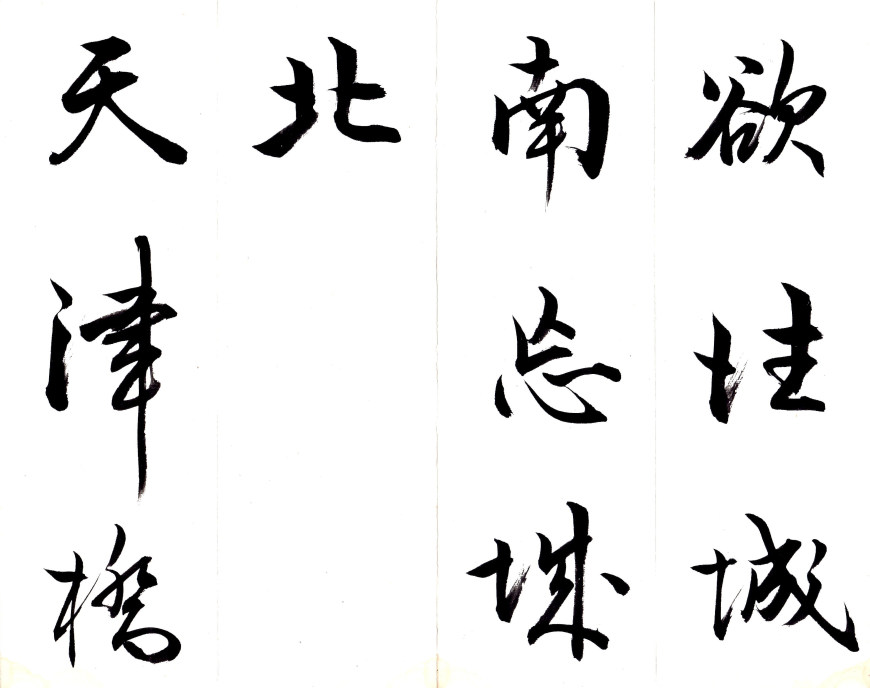 欲往城
南忘城
北
天津橋